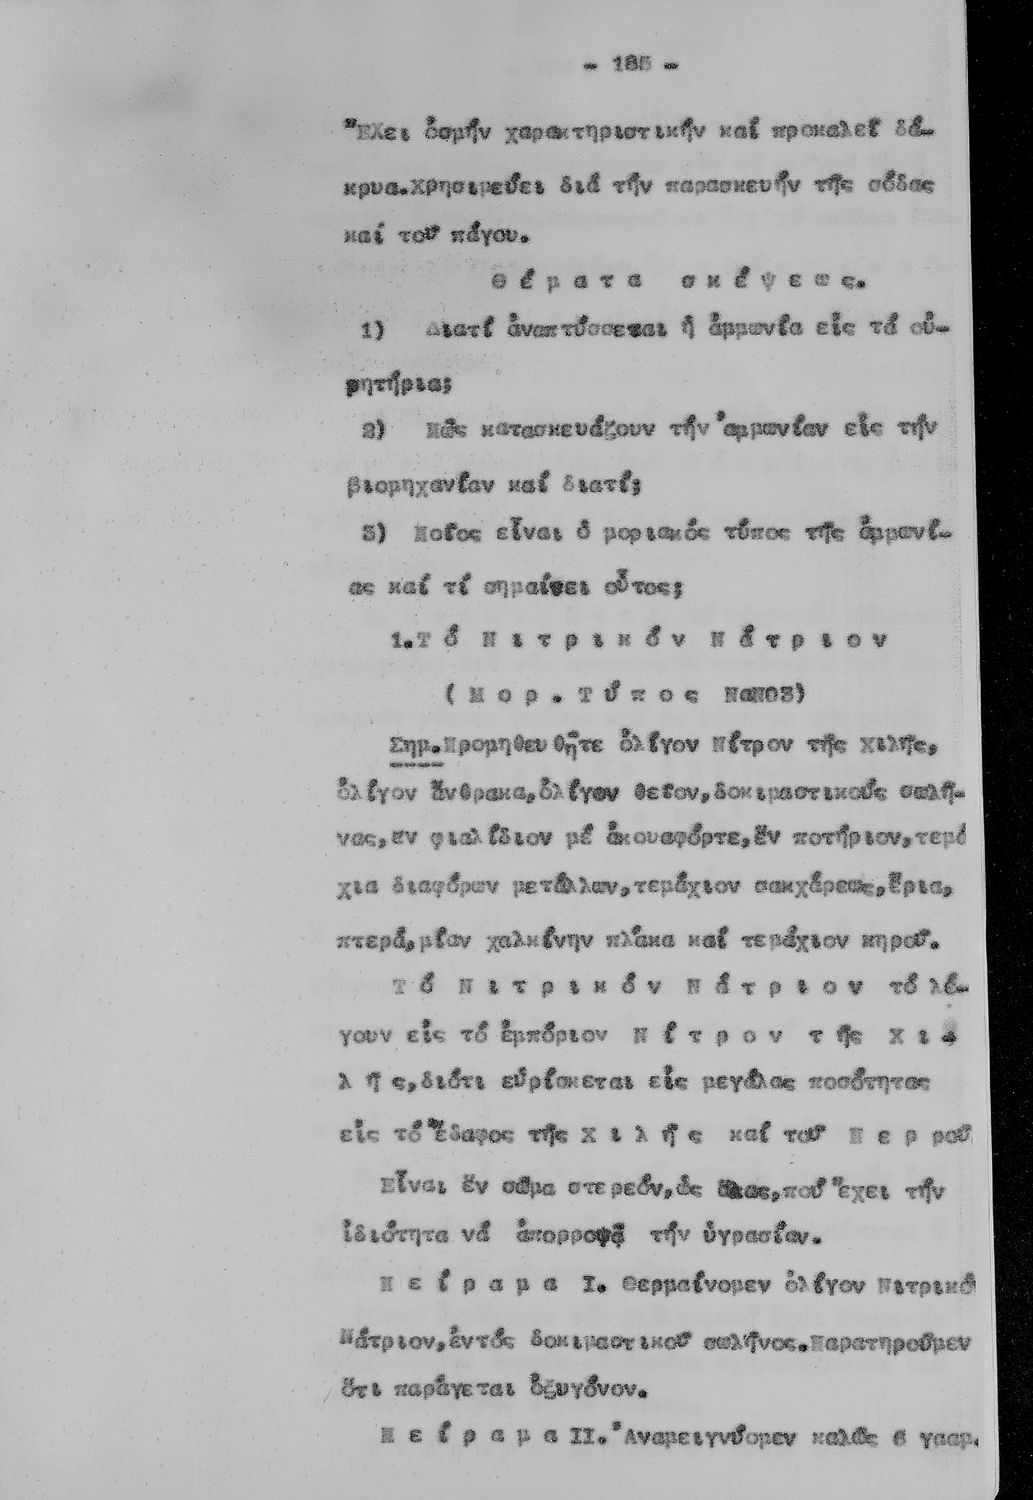 - 185 -
Ἔχει ὀσμήν χαρακτηριστικήν καί προκαλεῖ δά-
κρυα.Χρησιμεύει διά τήν παρασκευήν τῆς σόδας
καί τοῦ πάγου.
Θ έ μ α τ α  σ κ έ ψ ε ω ς.
1) Διατί ἀναπτύσσεται ἡ ἀμμωνία εἰς τά οὐ-
ρητήρια;
2) Πῶς κατασκευάζουν τήν ἀμμωνίαν εἰς τήν
βιομηχανίαν καί διατί;
3) Ποῖος εἶναι ὁ μοριακός τύπος τῆς ἀμμωνί-
ας καί τί σημαίνει οὗτος;
1.Τ ό  Ν ι τ ρ ι κ ό ν  Ν ά τ ρ ι ο ν
( Μ ο ρ . Τ ύ π ο ς ΝαΝΟ3)
Σημ.Προμηθευθῆτε ὀλίγον Νίτρον τῆς Χιλῆς,
ὀλίγον ἄνθρακα,ὀλίγον θεῖον,δοκιμαστικούς σωλῆ-
νας,ἕν φιαλίδιον μέ ἀκουαφόρτε,ἕν ποτήριον,τεμά
χια διαφόρων μετάλλων,τεμάχιον σακχάρεως,ἔρια,
πτερά,μίαν χαλκίνην πλάκα καί τεμάχιον κηροῦ.
Τ ό  Ν ι τ ρ ι κ ό ν  Ν ά τ ρ ι ο ν τό λέ-
γουν εἰς τό ἐμπόριον Ν ί τ ρ ο ν  τ ῆς  Χ ι -
λ ῆ ς,διότι εὑρίσκεται εἰς μεγάλας ποσότητας
εἰς τό ἔδαφος τῆς Χ ι λ ῆ ς καί τοῦ Π ε ρ ροῦ
Εἶναι ἕν σῶμα στερεόν,ὡς ἅλας,πού ἔχει τήν
ἰδιότητα νά ἀπορροφᾷ τήν ὑγρασίαν.
Π ε ί ρ α μ α I. Θερμαίνομεν ὀλίγον Νιτρικό
Νάτριον,ἐντός δοκιμαστικοῦ σωλῆνος.Παρατηροῦμεν
ὅτι παράγεται ὀξυγόνον.
Π ε ί ρ α μ α II. Ἀναμειγνύομεν καλῶς 6 γααμ.